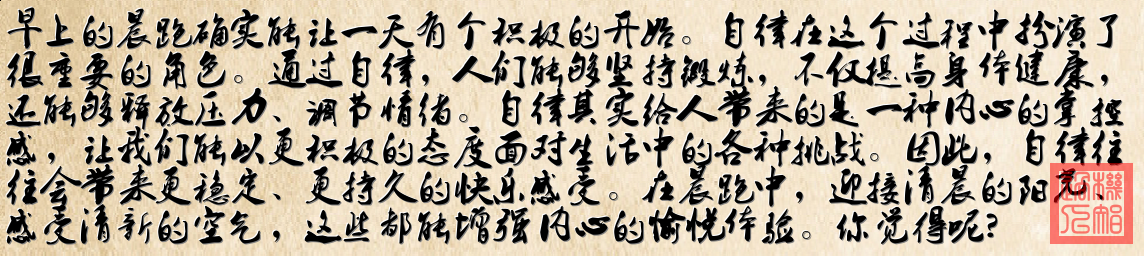 早上的晨跑确实能让一天有个积极的开始。自律在这个过程中扮演了
很重要的角色。通过自律，人们能够坚持锻炼，不仅提高身体健康，
还能够释放压力、调节情绪。自律其实给人带来的是一种内心的掌控
感，让我们能以更积极的态度面对生活中的各种挑战。因此，自律往
往会带来更稳定、更持久的快乐感受。在晨跑中，迎接清晨的阳光、
感受清新的空气，这些都能增强内心的愉悦体验。你觉得呢？